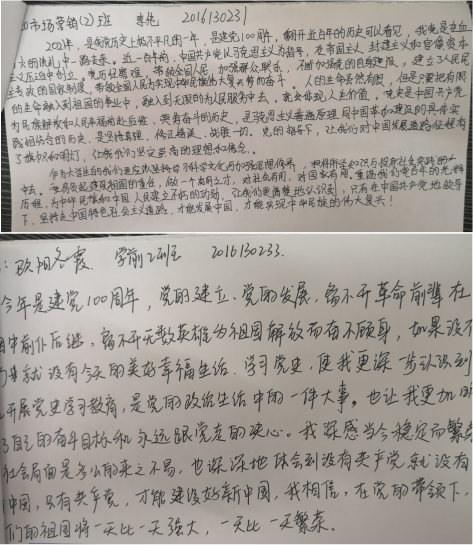 市场营销(2)班 李 2016130231
2021年,是我党历史上极不平凡的一年,是建党100周年,翻开近百年的历史可以看见,我党是在血
火的洗礼中一路走来。近一百年间,中国共产党以马克思主义为指导,在帝国主义、封建主义和官僚资本
主义压迫中创立。党历经磨难,带领全国人民,加强群众联系,不断加强党的自身建设,建立3人民民
主专政的国家制度,带领全国人民为实现中华民族伟大复兴努力奋斗。人的生命虽然有限,但是只要把有限
的生命融入到祖国的事业中,融入到无限的为人民服务中去,就会体现人生价值。党史是中国共产党
为民族解放和人民幸福前赴后继、英勇奋斗的历史,是马克思主义普遍原理同中国革命和建设的具体实
践相结合的历史,是坚持真理、修正错误、战胜一切,党的指导下,让我们对中国发展道路征程有
了旗帜和明灯,让我们坚定崇高的理想和信念。
作为大学生的我们更应该坚持学习科学文化与加强思想修养,把所学知识与投身社会实践
中去。做一个有用之才,对社会有用,对国家有用,重温我们党百年的光辉
历程,为中华民族和中国人民建立不朽的功勋,让我们更清楚地认识到,只有在中国共产党地领导
下,坚持走中国特色社会主义道路,才能发展中国,才能实现中华民族的伟大复兴!
:欧阳冬霞 学前2班 2016130233.
今年是建党100周年,党的建立、党的发展,离不开革命前辈在
中前仆后继,离不开无数英雄为祖国解放而奋不顾身,如果没
就没有今天的美好幸福生活.学习党史,使我更深一步认识到
开展党史学习教育,是党的政治生活中的一件大事。也让我更加
了自己的奋斗目标和永远跟党走的决心。我深感当今稳定而繁
社会局面是多么的来之不易,也深深地体会到没有共产党就没有
中国,只有共产党,才能建设好新中国,我相信,在党的带领下,
们的祖国将一天比一天强大,一天比一天繁荣.